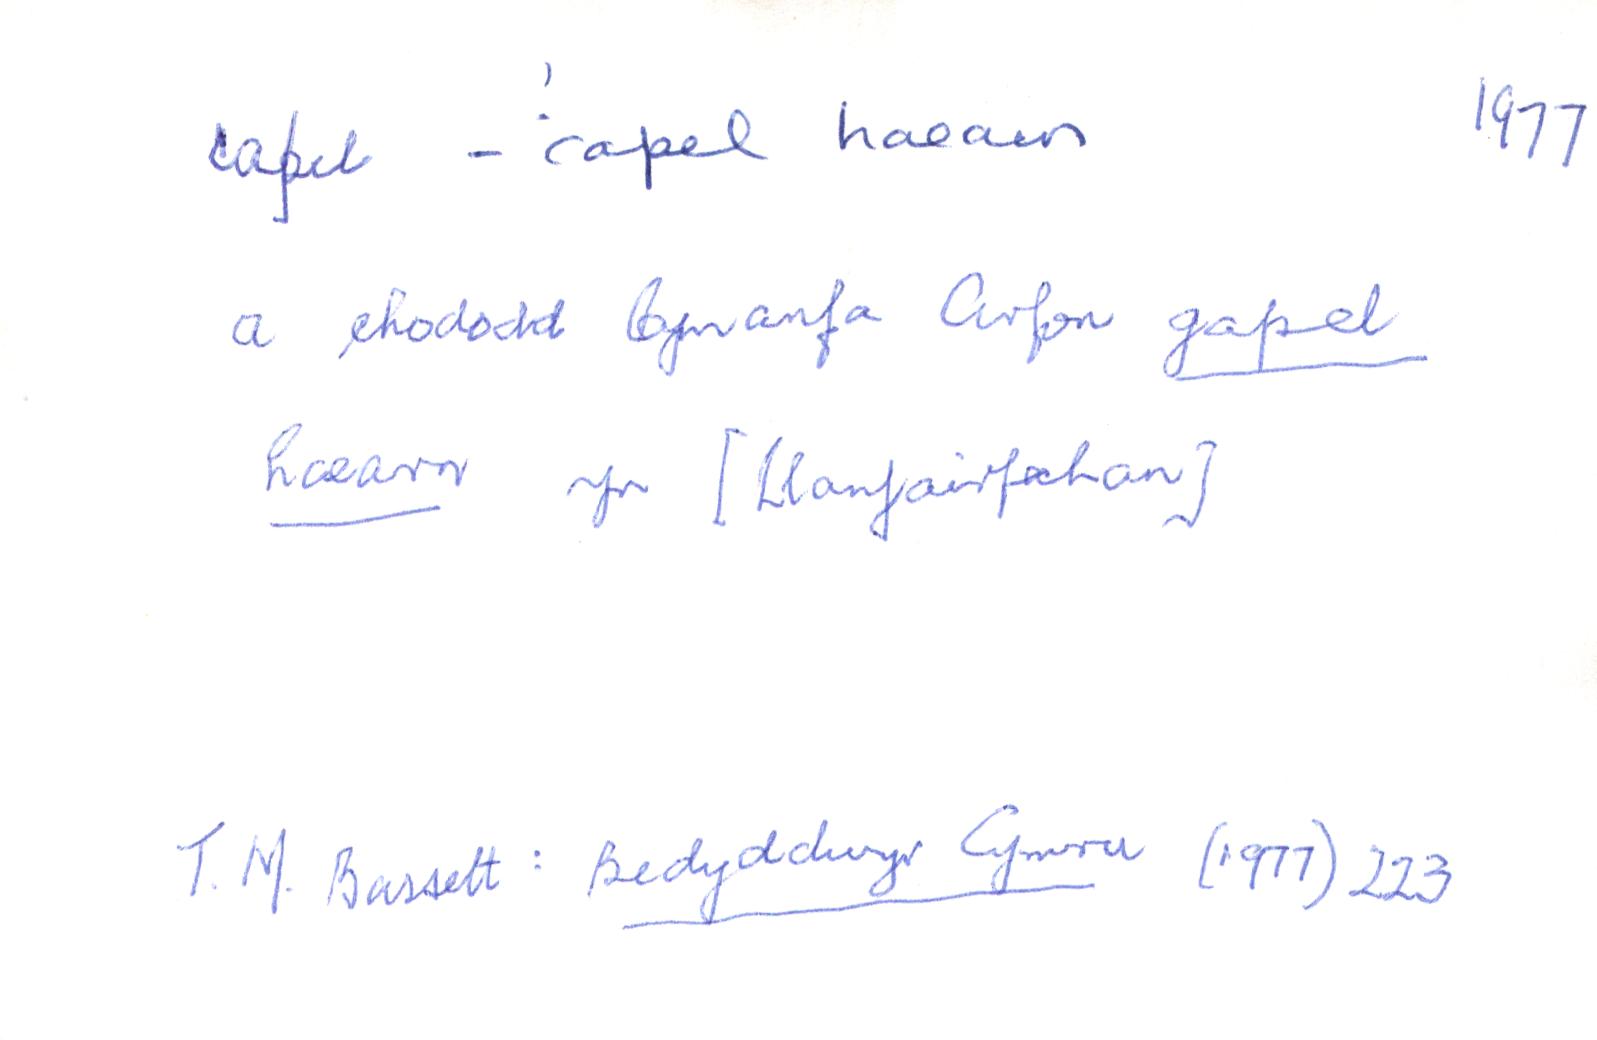 capel - capel haearn 1977
a chododd Cymanfa Arfon gapel
haearn yn [Llanfairfechan]
T. M. Bassett: Bedyddwyr Cymru (1977) 223